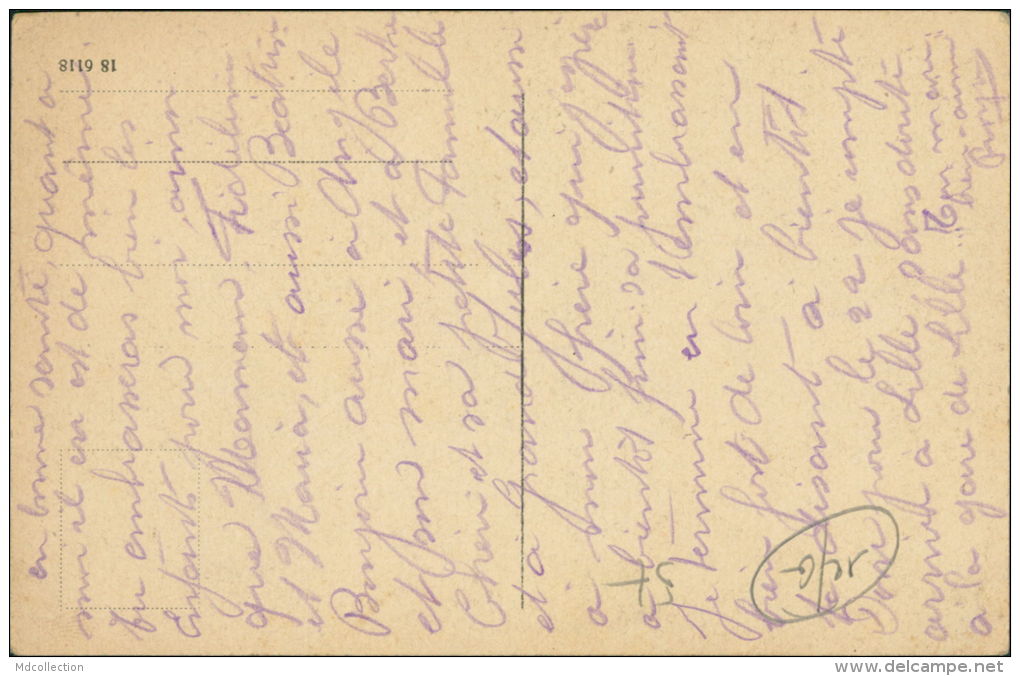 en bonne santé, quant a
moi il en est de même
tu embrasseras bien les
Enfants pour moi, ainsi
que Maman, Fidéline
et Maria, et aussi Béatrix
Bonjour aussi a Angèle
et son mari et a Berthe
Chéri et sa petite Famille
et a Grand Jules, et aussi
a mon Frère que j'espère
a bientôt
Je termine en t'embrassant
bien fort de loin et en
te disant a bientôt
pour le 22 je compte
arrivé a Lille sans doute
a la gare de Lille
Ton mari
18 6118
Mdcollection
www.delcampe.net